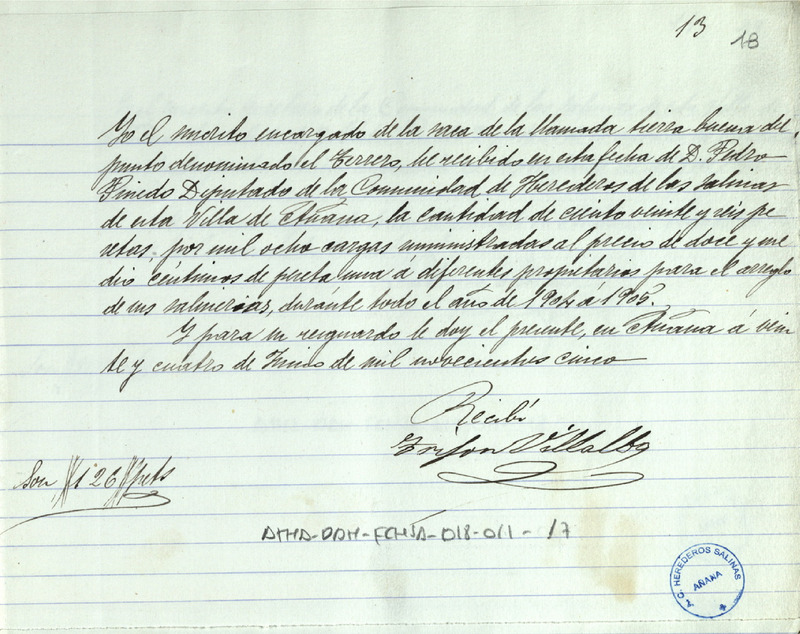 13
18
Yo el suscrito encargado de la saca de la llamada tierra buena del
punto denominado el Terrero, he recibido en esta fecha de D. Pedro
Pinedo Diputado de la Comunidad de Herederos de las Salinas
de esta Villa de Añana, la cantidad de ciento veinte y seis pe
setas, por mil ocho cargas suministradas al precio de doce y me
dio céntimos de peseta una á diferentes propietarios para el arreglo
de sus salmerias, duránte todo el año de 1904 á 1905.
Y para su resguardo le doy el presente, en Añana á vein
te y cuatro de Junio de mil novecientos cinco
Recibí
Trifon Villalba
Son #126# pets
ATHA-DAH-FCHSA-018-011-17
A.C. HEREDEROS SALINAS
AÑANA